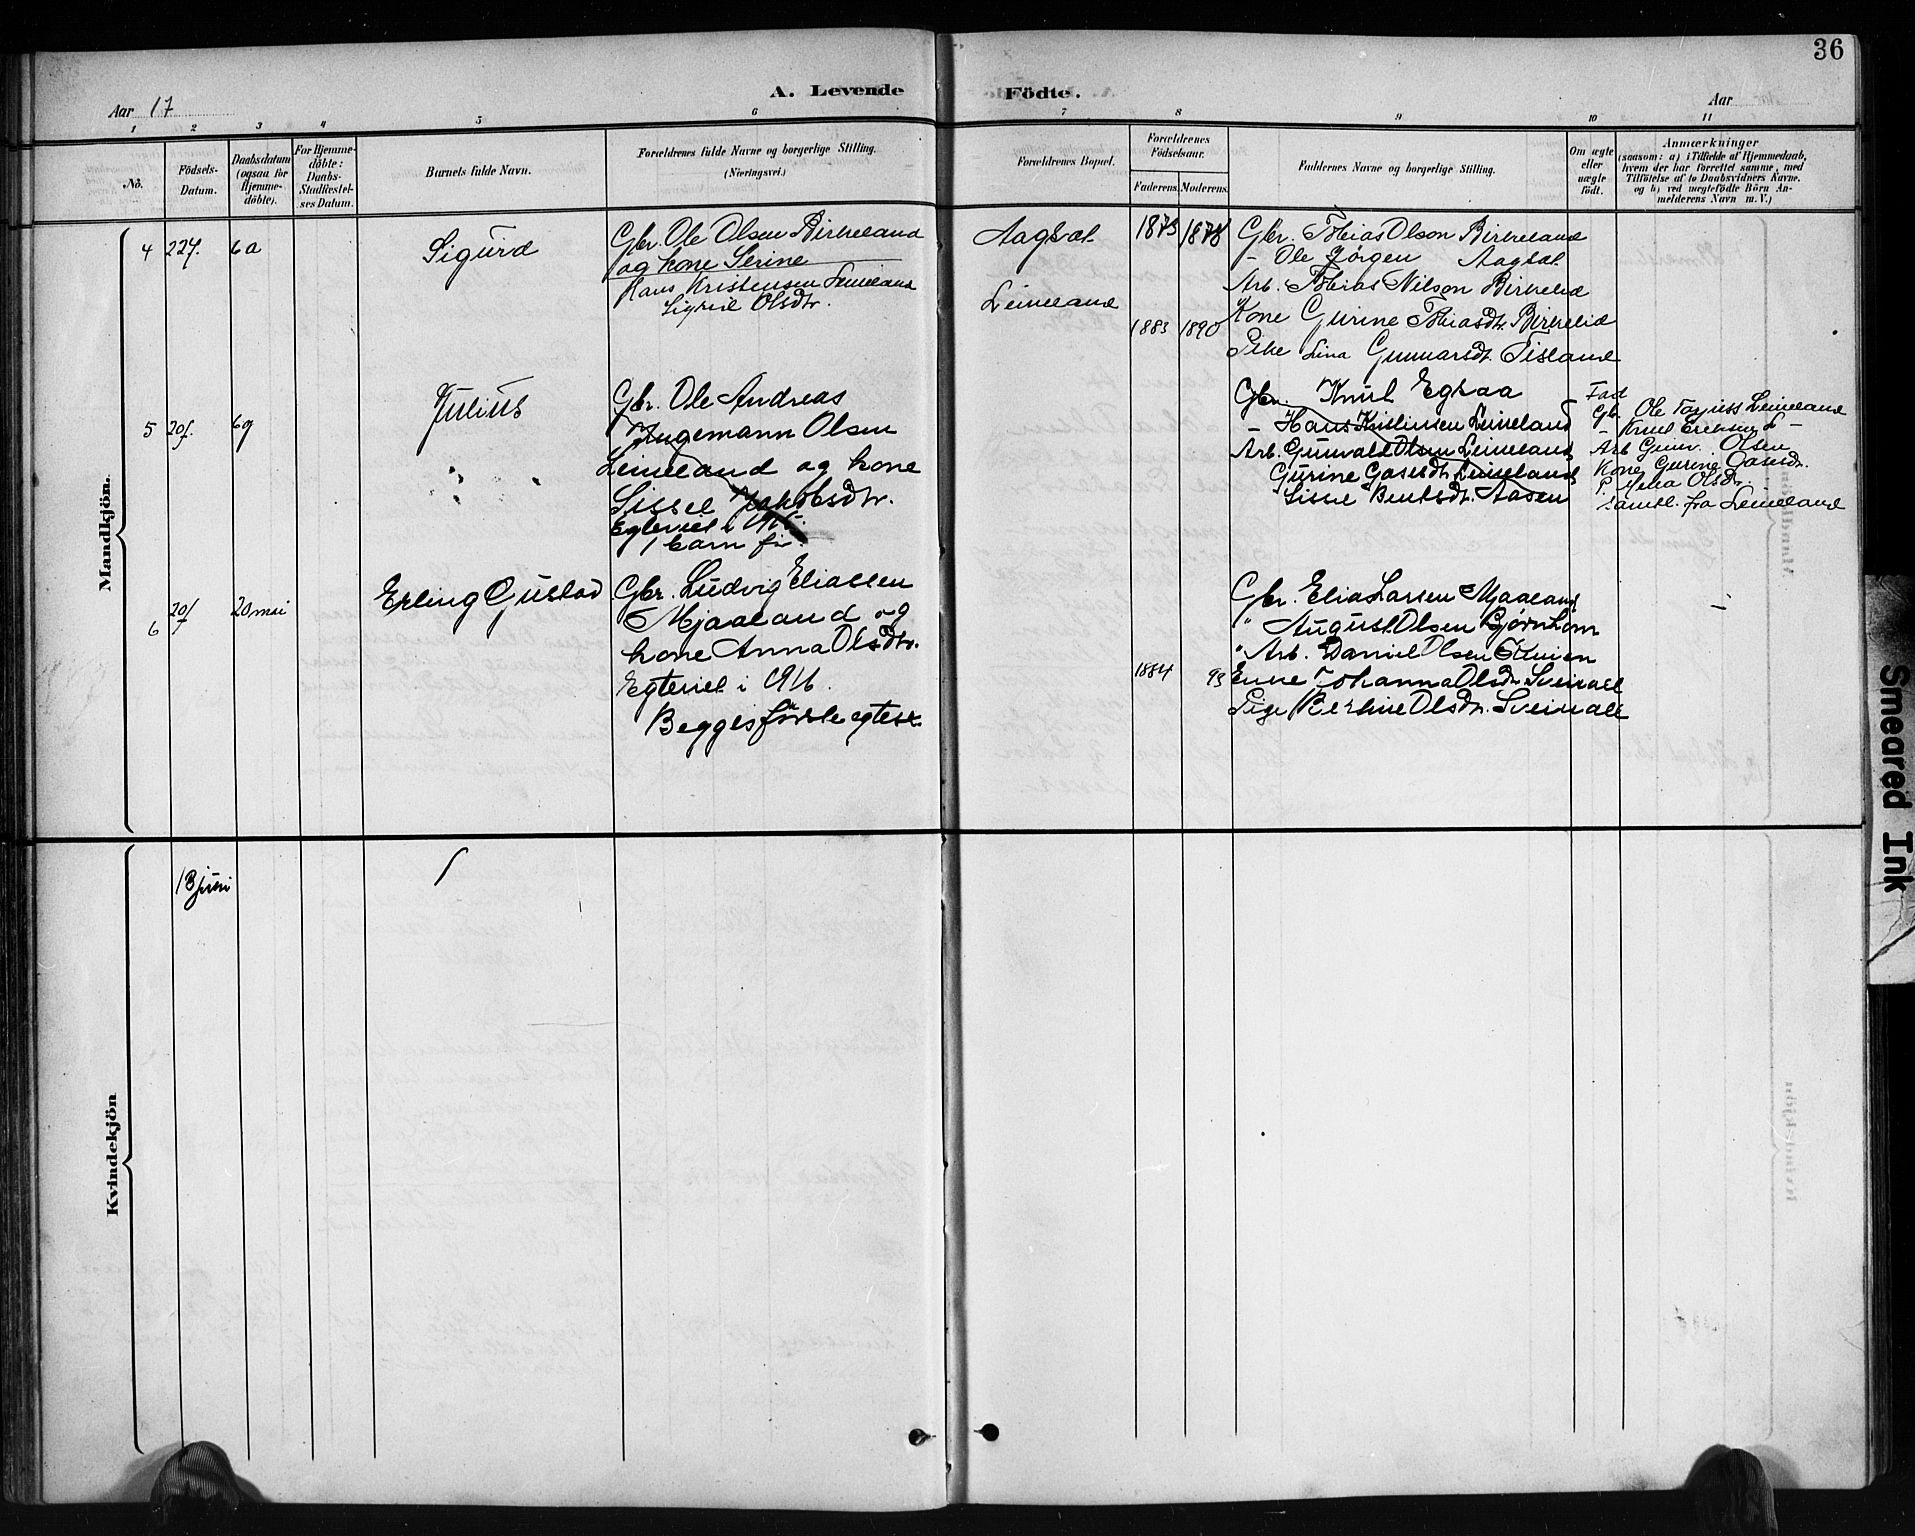 36
A. Levende Födte.
Aar 17
Aar
1 2 3 4 5 6 7 8 9 10 11
No.
Födsels-
Datum.
Daabsdatum
(ogsaa for
Hjemme-
döbte).
For Hjemme-
döbte:
Daabs-
Stadfæstel-
ses Datum.
Barnets fulde Navn.
Forældrenes fulde Navne og borgerlige Stilling.
(Næringsvei.)
Forældrenes Bopæl.
Forældrenes
Födselsaar.
Faderens. Moderens.
Faddernes Navne og borgerlige Stilling.
Om ægte
eller
uægte
födt.
Anmærkninger
(saasom: a) i Tilfælde af Hjemmedaab,
hvem der har forrettet samme, med
Tilföielse af to Daabsvidners Navne.
og b) ved uægtefödte Börn An-
melderens Navn m. V.)
Mandkjön.
4
Sigurd
Gbr. Ole Olsen Birkeland
og kone Serine
Hans Kristensen Leineland
Sigrid Olsdtr.
Leineland
1873 1878
1883 1890
Gbr. Tobias Olson Birkeland
- Ole Jörgen
Arb. Tobias Nilson Birkelid
Kone Gurine Tobiasdtr. Birkelid
Pike Lina Gunnarsdt. Tisland
5
Julius
Gbr. Ole Andreas
Ingemann Olsen
Leineland og kone
Sissel Jakobsdtr.
Egteviet i
1 barn før.
Gbr. Knut Egsaa
- Hans Kristinsen Leineland
Arb. Gunvald Olsen Leineland
Gurine Gasesdt. Leineland
Sissel Bentsdt. Aasen
Fad
Gbr. Ole Leineland
- Knut Eriksen do -
Arb Gunv. Olsen
Kone Gurine Gasesdtr.
P. Olsdtr.
samtl. fra Leineland
6
20/7
20 mai
Erling Gustav
Gbr. Ludvig Eliassen
Mjaaland og
kone Anna Olsdtr.
Egteviet i 1916.
Begges første egtesk.
1884 93
Gbr. Elias Larsen Mjaaland
" August Olsen Bjørnhom
" Arb. Daniel Olsen
Enke Johanna Olsdtr. Sveinall
Pige Berthe Olsdtr. Sveinall
-
Kvindekjön
13 juni
/
Smeared Ink